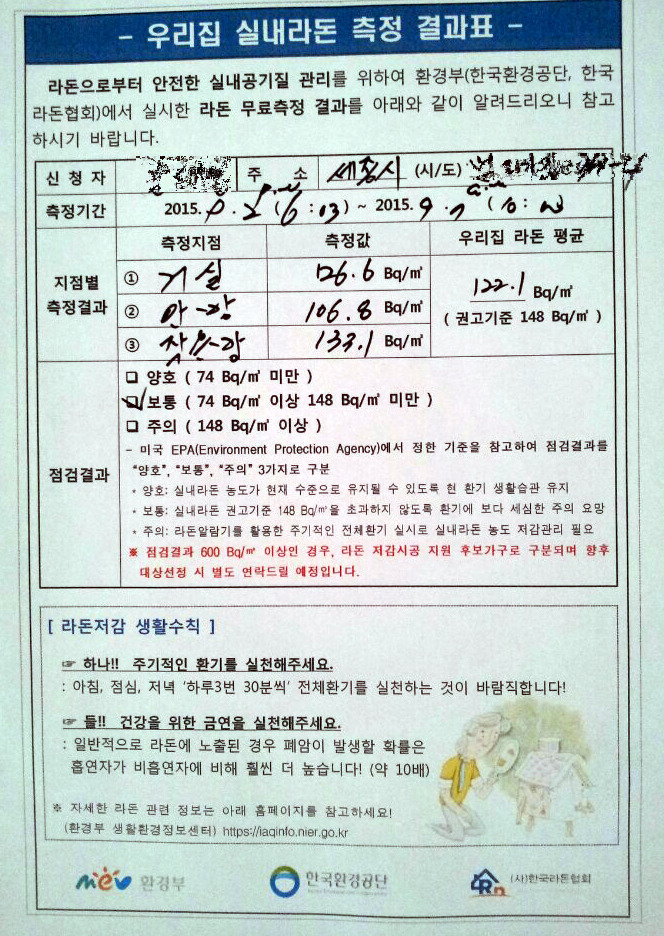 - 우리집 실내라돈 측정 결과표 -
라돈으로부터 안전한 실내공기질 관리를 위하여 환경부(한국환경공단, 한국
라돈협회)에서 실시한 라돈 무료측정 결과를 아래와 같이 알려드리오니 참고
하시기 바랍니다.
신 청 자 주 소 세종시 (시/도)
측정기간 2015. ~ 2015. 9.
측정지점 측정값 우리집 라돈 평균
지점별
측정결과
① 거실 126.6 Bq/㎥
② 안방 106.8 Bq/㎥
③ 작은방 133.1 Bq/㎥
122.1 Bq/㎥
( 권고기준 148 Bq/㎥ )
점검결과
❑ 양호 ( 74 Bq/㎥ 미만 )
☑ 보통 ( 74 Bq/㎥ 이상 148 Bq/㎥ 미만 )
❑ 주의 ( 148 Bq/㎥ 이상 )
- 미국 EPA(Environment Protection Agency)에서 정한 기준을 참고하여 점검결과를
"양호", "보통", "주의" 3가지로 구분
* 양호: 실내라돈 농도가 현재 수준으로 유지될 수 있도록 현 환기 생활습관 유지
* 보통: 실내라돈 권고기준 148 Bq/㎥을 초과하지 않도록 환기에 보다 세심한 주의 요망
* 주의: 라돈알람기를 활용한 주기적인 전체환기 실시로 실내라돈 농도 저감관리 필요
※ 점검결과 600 Bq/㎥ 이상인 경우, 라돈 저감시공 지원 후보가구로 구분되며 향후
대상선정 시 별도 연락드릴 예정입니다.
[ 라돈저감 생활수칙 ]
☞ 하나!! 주기적인 환기를 실천해주세요.
: 아침, 점심, 저녁 '하루3번 30분씩' 전체환기를 실천하는 것이 바람직합니다!
☞ 둘!! 건강을 위한 금연을 실천해주세요.
: 일반적으로 라돈에 노출된 경우 폐암이 발생할 확률은
흡연자가 비흡연자에 비해 훨씬 더 높습니다! (약 10배)
※ 자세한 라돈 관련 정보는 아래 홈페이지를 참고하세요!
(환경부 생활환경정보센터) https://iaqinfo.nier.go.kr
mev 환경부 한국환경공단 (사)한국라돈협회